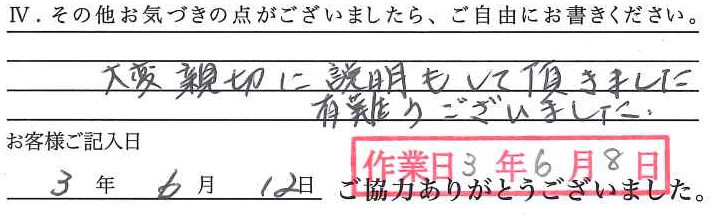 Ⅳ．その他お気づきの点がございましたら、ご自由にお書きください。
大変親切に説明もして頂きました
有難うございました。
お客様ご記入日
作業日3年6月8日
3年6月12日 ご協力ありがとうございました。